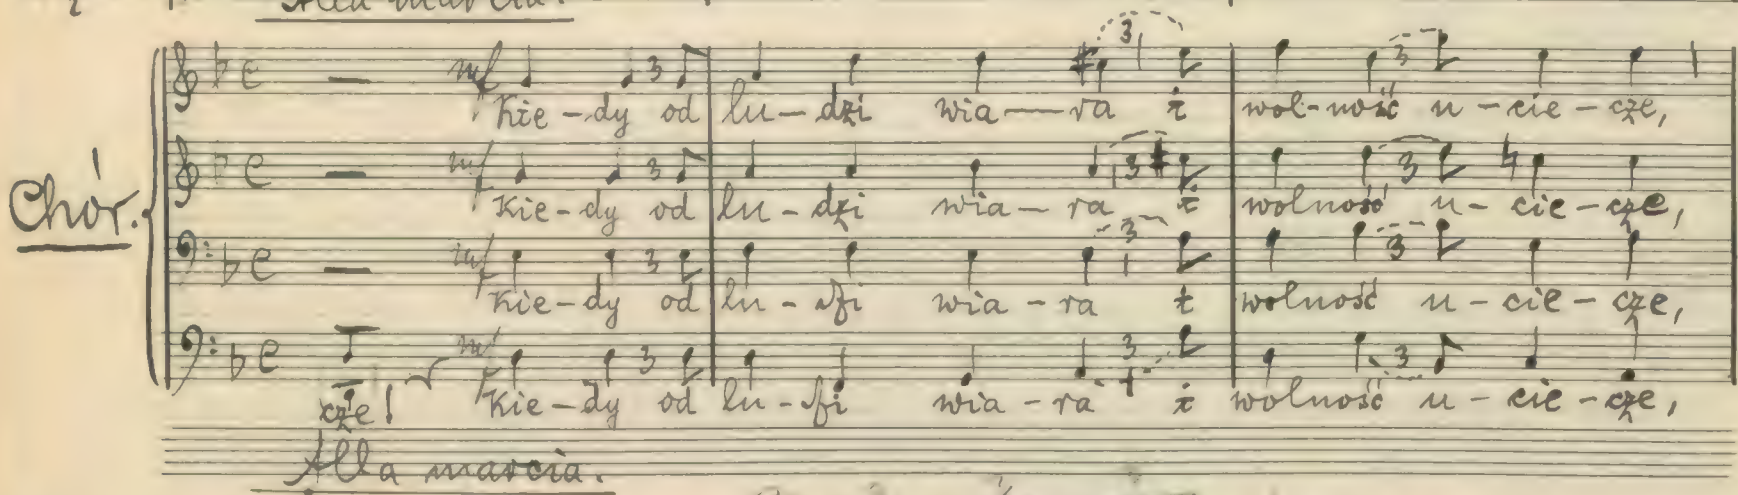 Alla marcia.
mf 3 3 3
Kie-dy od lu-dzi wia-ra i wol-ność u-cie-cze,
mf 3 3 3
Chór.
Kie-dy od lu-dzi wia-ra i wolność u-cie-cze,
mf 3 3 3
Kie-dy od lu-dzi wia-ra i wolność u-cie-cze,
mf 3 3 3
cze! Kie-dy od lu-dzi wia-ra i wolność u-cie-cze,
Alla marcia.